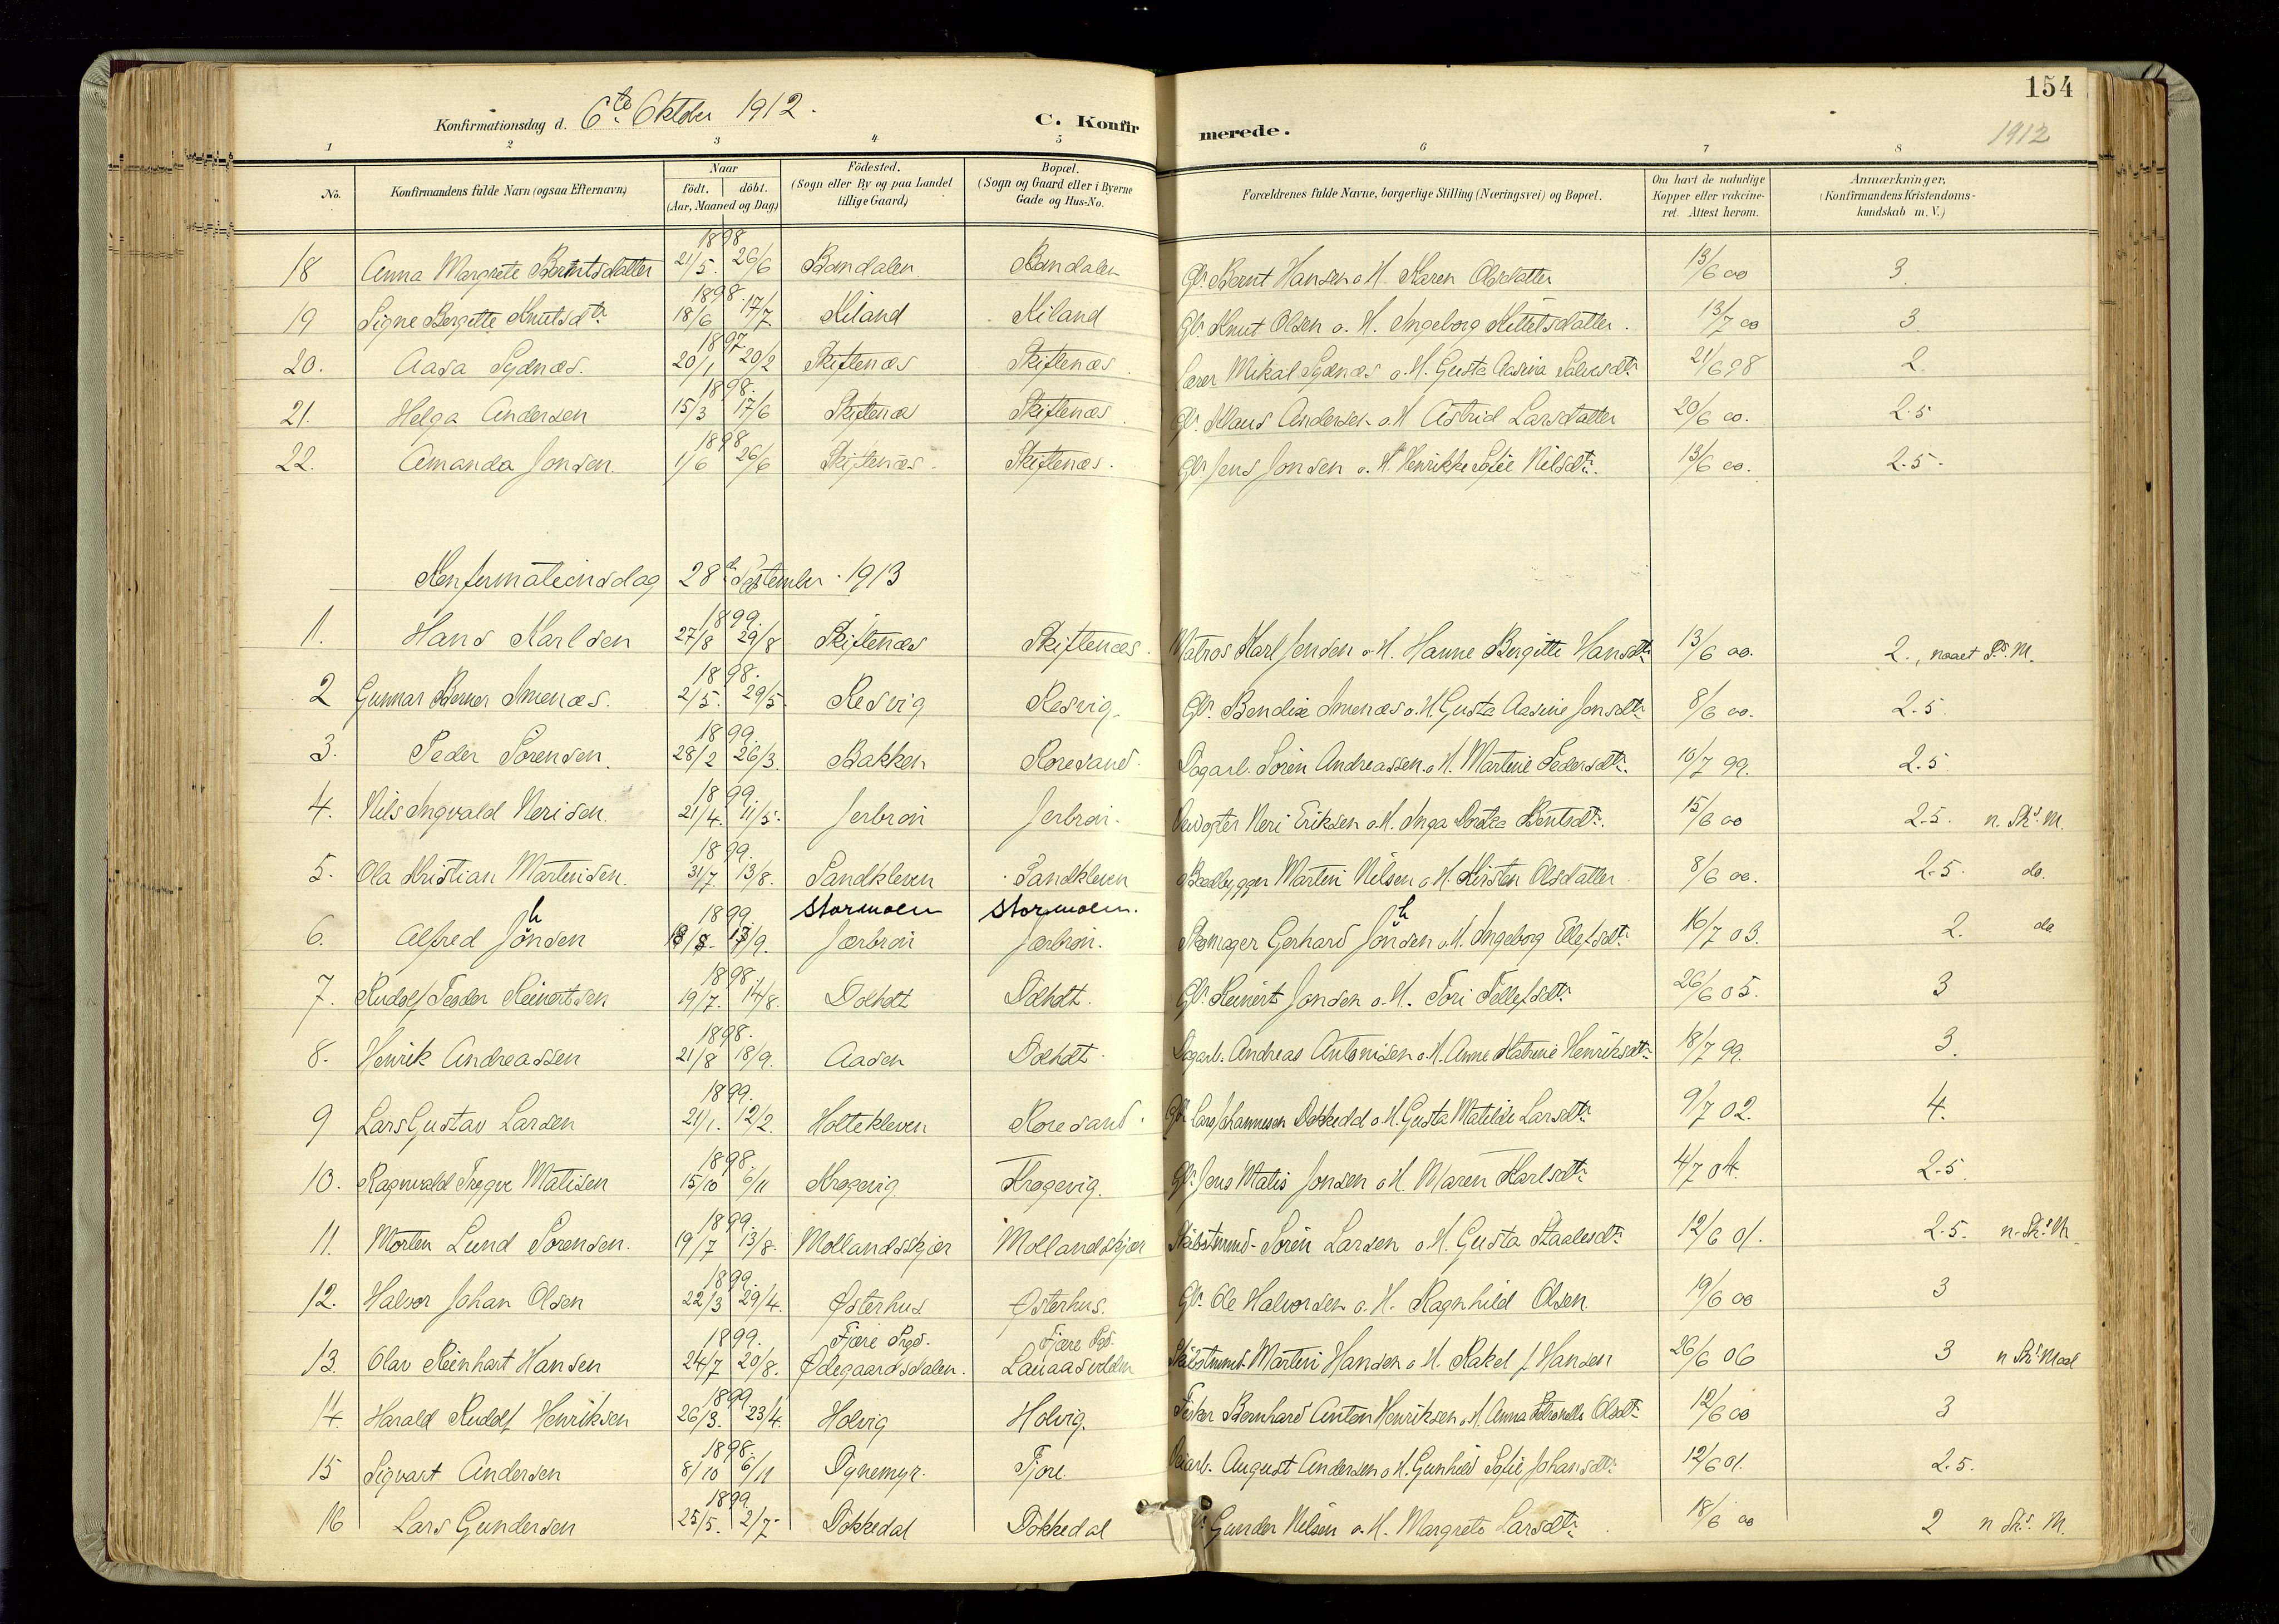 154
Konfirmationsdag d. 6te Oktober 1912.
C. Konfirmerede.
1912
1 2 3 4 5 6 7 8
No. Konfirmandens fulde Navn (ogsaa Efternavn) Naar födt. döbt. (Aar, Maaned og Dag) Födested. (Sogn eller By og paa Landet tillige Gaard) Bopæl. (Sogn og Gaard eller i Byerne Gade og Hus-No. Forældrenes fulde Navne, borgerlige Stilling (Næringsvei) og Bopæl. Om havt de naturlige Kopper eller vakcineret. Attest herom. Anmærkninger, (Konfirmandens Kristendomskundskab m. V.)
1898
18 Anna Margrete Berntsdatter 21/5. 26/6 Bondalen Bondalen Gbr. Bernt Hansen o. H. Karen Olsdatter 13/6 00 3
1898.
19 Signe Bergitte Knutsdtr 18/6 17/7 Kiland Kiland Gbr. Knut Olsen o. H. Ingeborg Kittelsdatter. 13/7 00 3
1897.
20. Aasa Sydnæs. 20/1 20/2 Skiftenæs Skiftenæs Lærer Mikal Sydnæs o. H. Gusta Aasina Salvesdtr 21/6 98 2.
1898.
21. Helga Andersen 15/3 17/6 Skiftenæs Skiftenæs Gbr. Klaus Andersen o. H Astrid Larsdatter 20/6 00. 2.5
1898
22. Amanda Jonsen. 1/6 26/6 Skiftenæs. Skiftenæs. Gbr Jens Jonsen o. H. Henrikke Sofie Nilsdtr. 13/6 00. 2.5.
Konfirmationsdag 28de September 1913
1899.
1. Hans Karlsen 27/8 29/8 Skiftenæs Skiftenæs. Matros Karl Jensen o. H. Hanne Bergitte Hansdtr 13/6 00. 2., noget M.
1898.
2 Gunnar Berner Imenæs. 2/5. 29/5. Resvig Resvig. Gbr. Bendix Imenæs o. H. Gusta Aasine Jonsdtr 8/6 00. 2.5
1899.
3. Peder Sörensen. 28/2 26/3. Bakken Roresand. Dagarb. Sören Andreassen o. H. Martine Pedersdtr. 10/7 99. 2.5
1899.
4. Nils Ingvald Nerisen. 21/4. 11/5. Jerbroi Jerbroi. Neri Eriksen o. H. Inga Dortea Bentsdtr. 15/6 00 2.5. n. Sk. M.
1899.
5. Ola Kristian Martinsen. 31/7. 13/8. Sandkleven Sandkleven Baadbygger Martin Nilsen o. H. Kirsten Olsdatter 8/6 00. 2.5. do.
1899 Stormoen Stormoen.
6. Alfred Johnsen 18/8. 17/9. Jærbroi Jærbroi. Skomager Gerhard Johnsen o. H. Ingeborg Ellefsdtr. 16/7 03. 2. do.
1898.
7. Rudolf Teodor Reinertsen 19/7. 14/8. Dolholt Dolholt. Gbr. Reinert Jonsen o. H. Tori Tellefsdtr. 26/6 05. 3
1898.
8. Henrik Andreassen 21/8 18/9. Aasen Dolholt. Dagarb. Andreas Antonisen o. H. Anne Katrine Henriksdtr 18/7 99. 3.
1899.
9 Lars Gustav Larsen 21/1. 12/2. Holtekleven Roresand. Gbr. Lars Johannesen Dokkedal o. H. Gusta Matilde Larsdtr 9/7 02. 4.
1898.
10. Ragnvald Trygve Matisen 15/10 6/11 Krogevig Krogevig. Gbr. Jens Matis Jonsen o. H. Maren Karlsdtr 4/7 04. 2.5.
1899.
11. Morten Lund Sörensen. 19/7 13/8. Mollandsskjær Mollandskjær Skibstmmd. Sören Larsen o. H. Gusta Staalesdtr 12/6 01. 2.5. n. Sk. M.
1899.
12. Halvor Johan Olsen 22/3 29/4. Østerhus Østerhus. Gbr. Ole Halvorsen o. H. Ragnhild Olsen. 19/6 00 3
1899. Fjære Pgd. Fjære Pgd.
13. Olav Reinhart Hansen 24/7 20/8. Ødegaardsdalen. Skibstmmd. Martin Hansen o. H. Rakel J. Hansen 26/6 06 3 n Sk. Maal
1899.
14. Harald Rudolf Henriksen 26/3. 23/4. Holvig Holvig. Fisker Bernhard Anton Henriksen o. H. Anna Petronelle Olsdtr 12/6 00 3
1898.
15 Sigvart Andersen 8/10 6/11 Dynemyr. Fjore August Andersen o. H. Gunhild Sofie Johansdtr. 12/6 01. 2.5.
1899.
16 Lars Gundersen 25/5. 2/7. Dokkedal Dokkedal Gunder Nilsen o. H. Margrete Larsdtr. 18/6 00 2 n Sk. M.